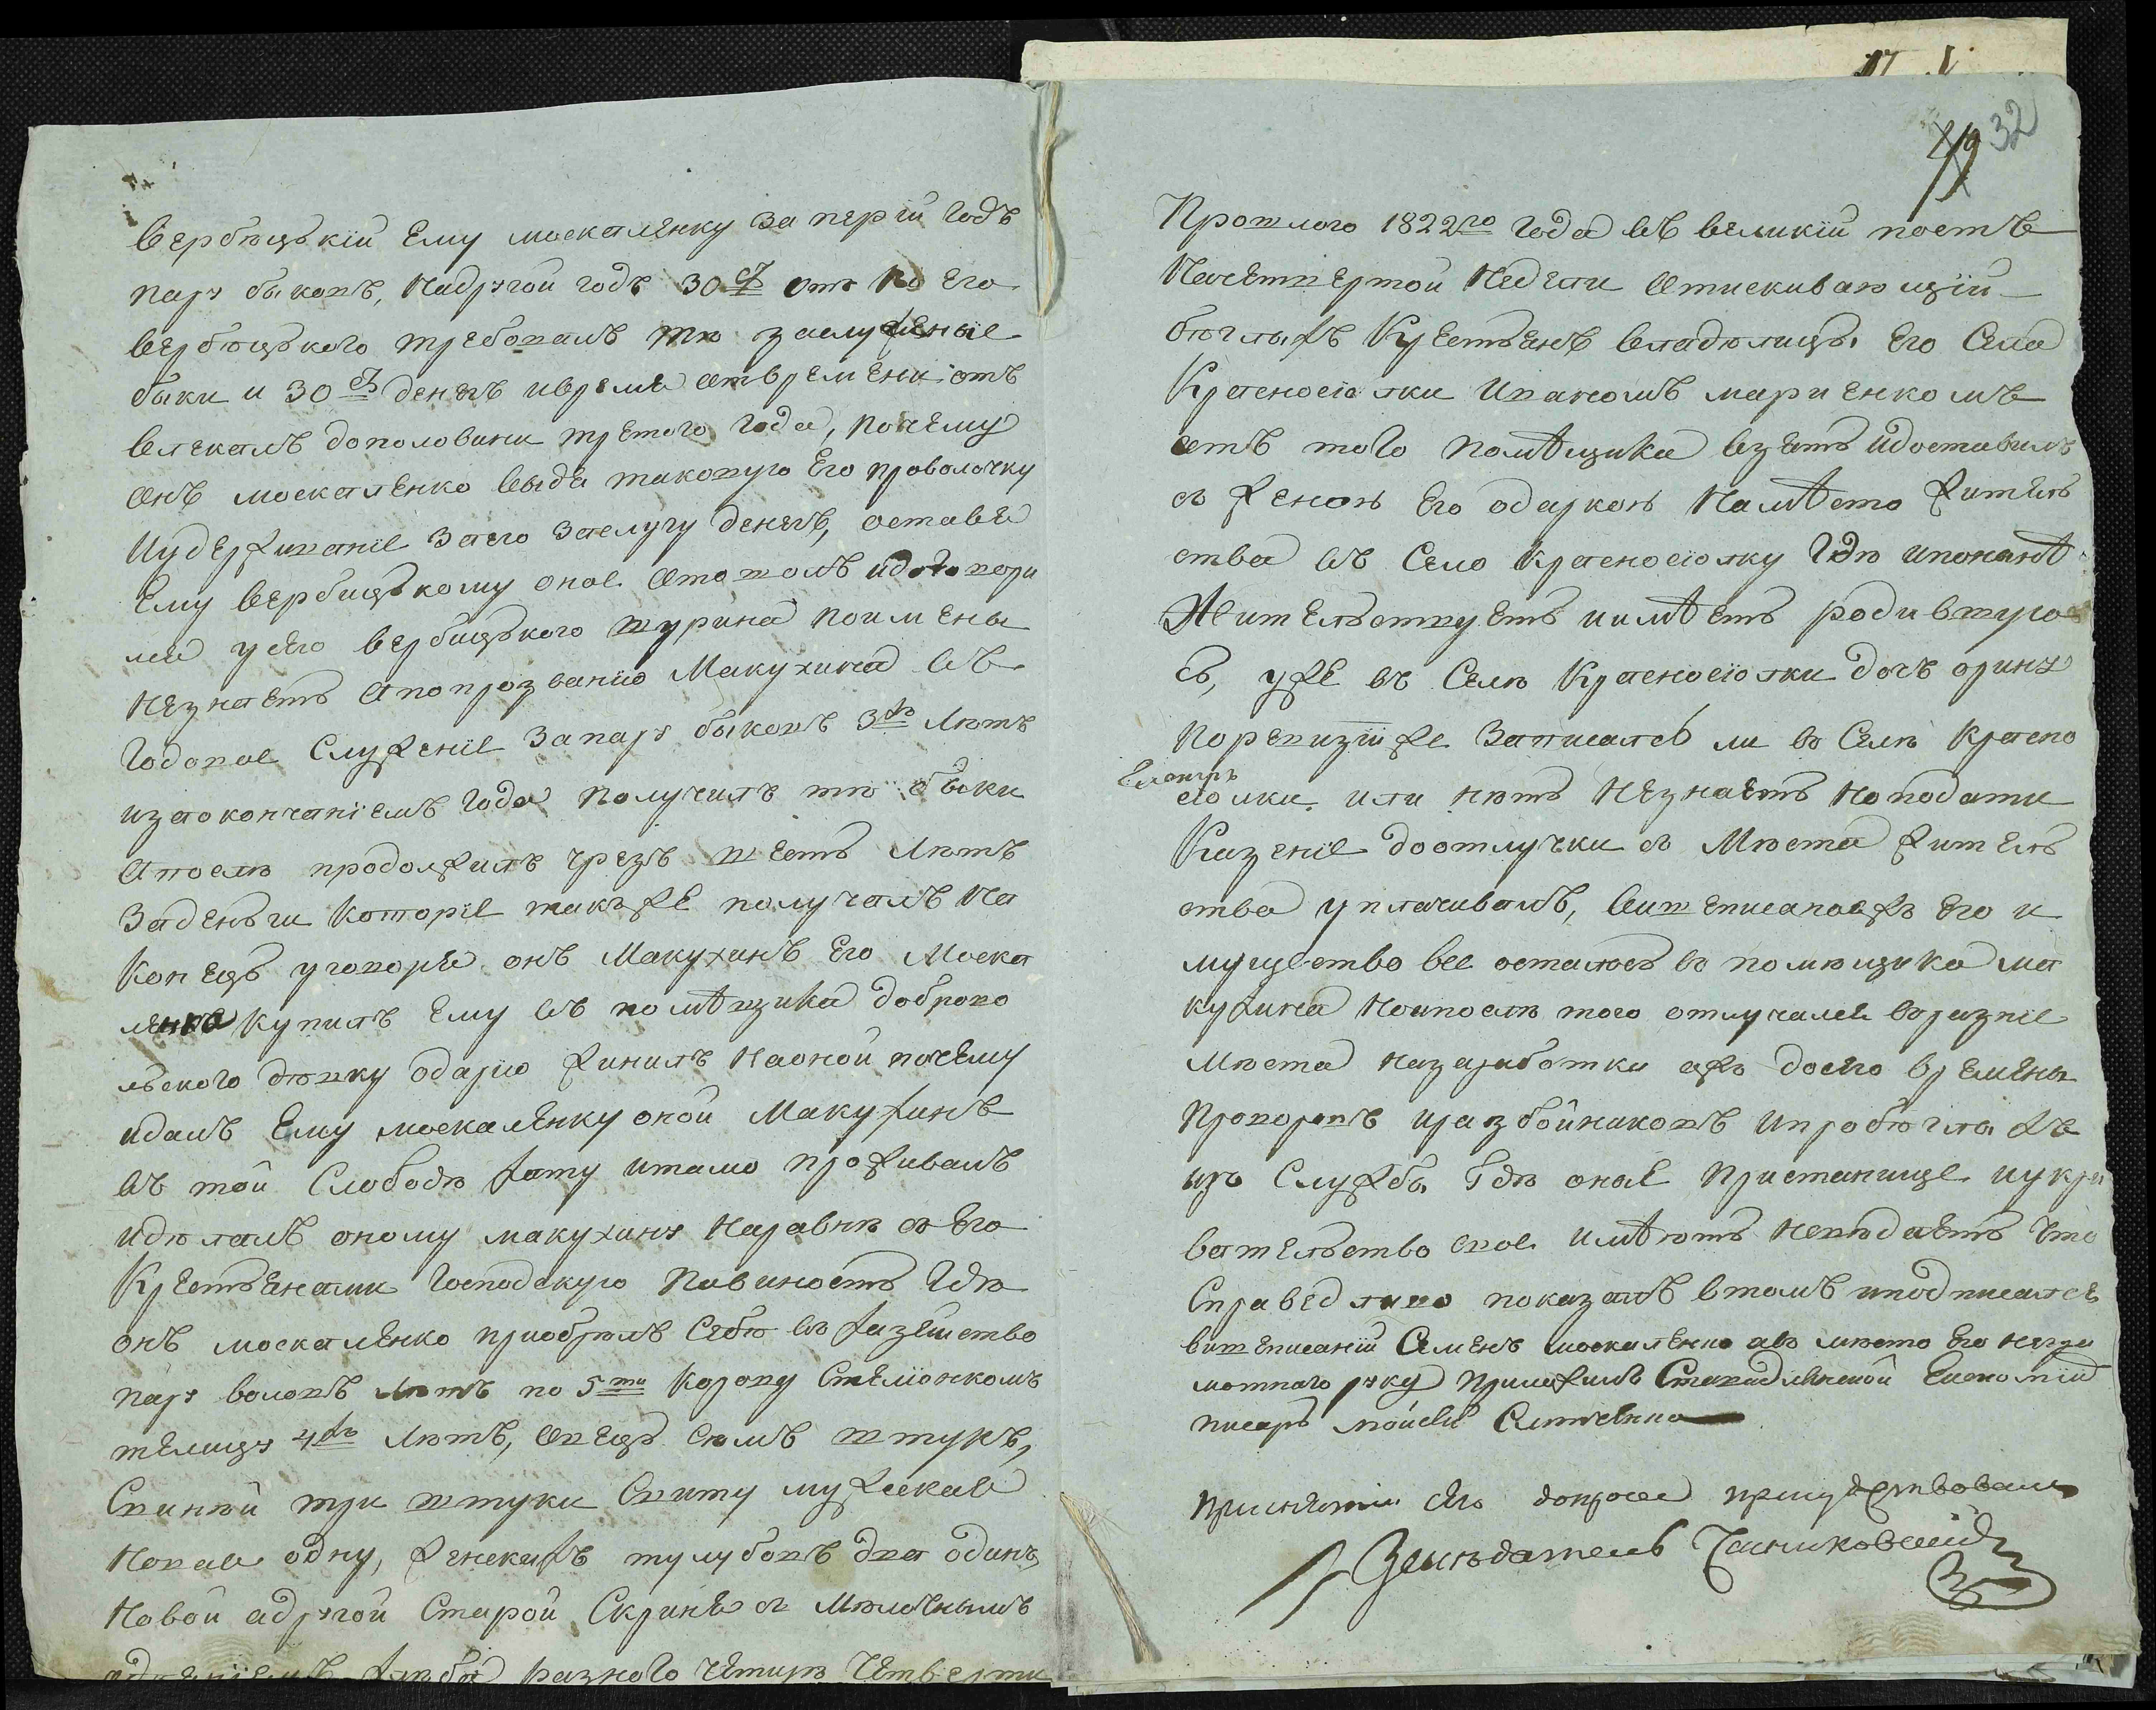 вербѣцькій Ему москаленку за перій годъ
пару биковъ, Надругой годъ 30 р. отъ Ко Его
вербѣцького требовалъ тѣ заслуженые
быки и 30 р. денегъ ивремя отвремени отъ
влекалъ дополовини третого года, почему
онъ москаленко выдя таковую Его проволочку
Иудерживаніе заего заслугу денегъ, оставя
Ему вербицькому оное отошолъ идоговори
лся усего вербицького шурина поимены
незнаетъ апопрозванію Макухина въ
годовое Служеніе Запару быковъ 3хъ лѣтъ
изаокончаніемъ года получилъ тѣ быки
апослѣ продолжилъ чрезъ шесть лѣтъ
Заденьги которіе такъже получалъ На
конецъ уговоря онъ Макухинъ Его Моска
ленка купилъ Ему въ помѣщика доброво
льского дѣвку одарію женилъ Наоной почему
идалъ Ему москаленку оной Макухинъ
въ той Слободѣ хату итамо проживалъ
идѣлалъ оному макухину Наравнѣ съ Его
Крестьянами Господскую Повиность гдѣ
онъ москаленко приобрѣлъ Себѣ въ хазяйство
пару воловъ лѣтъ по 5ти корову Стелюнкомъ
телицу 4хъ лѣтъ, овецъ семъ штукъ,
Свиней три штуки Свиту мужскую
Новую одну, женскихъ тулубовъ два одинъ
Новой адругой Старой, Скриня съ мѣлочнымъ
одѣяніемъ хлѣба разного четирѣ четверти
32
Прошлого 1822го года въ великій постъ
Начетвертой Недели отискивающій
бѣглыхъ Крестьянъ владѣлицы Его Села
Красносіолки Иваномъ мариенкомъ
отъ того помѣщика взятъ идоставилъ
съ женою Его одаркою Намѣсто житель
ства въ Село Красносіолку гдѣ ипонынѣ
Жительствуетъ иимѣетъ родившую
съ, уже въ Селѣ Красносіолки дочъ орину
Поревизіи же Записался ли въ Селѣ Красно
сіолки или нѣтъ Незнаетъ Ноподати
Казеніе доотлучки съ Мѣста житель
ства уплачивалъ, вишеписаноежъ Его и
мущество все осталось въ помѣщика ма
кухина Ноипослѣ того отлучался вразніе
Мѣста Назаработки ажъ досего времены
Проворовъ иразбойниковъ ипробѣглыхъ
изъ Службы Гдѣ оные Пристанище иукри
вательство свое имѣютъ Невѣдаетъ что
Справедливо показалъ втомъ иподписался
вишеписаній Семенъ москаленко авъ мѣсто Его негра
мотнаго руку Приложилъ
писаръ мойсей
Присняти сего допроса присудствовалъ
Засѣдатель